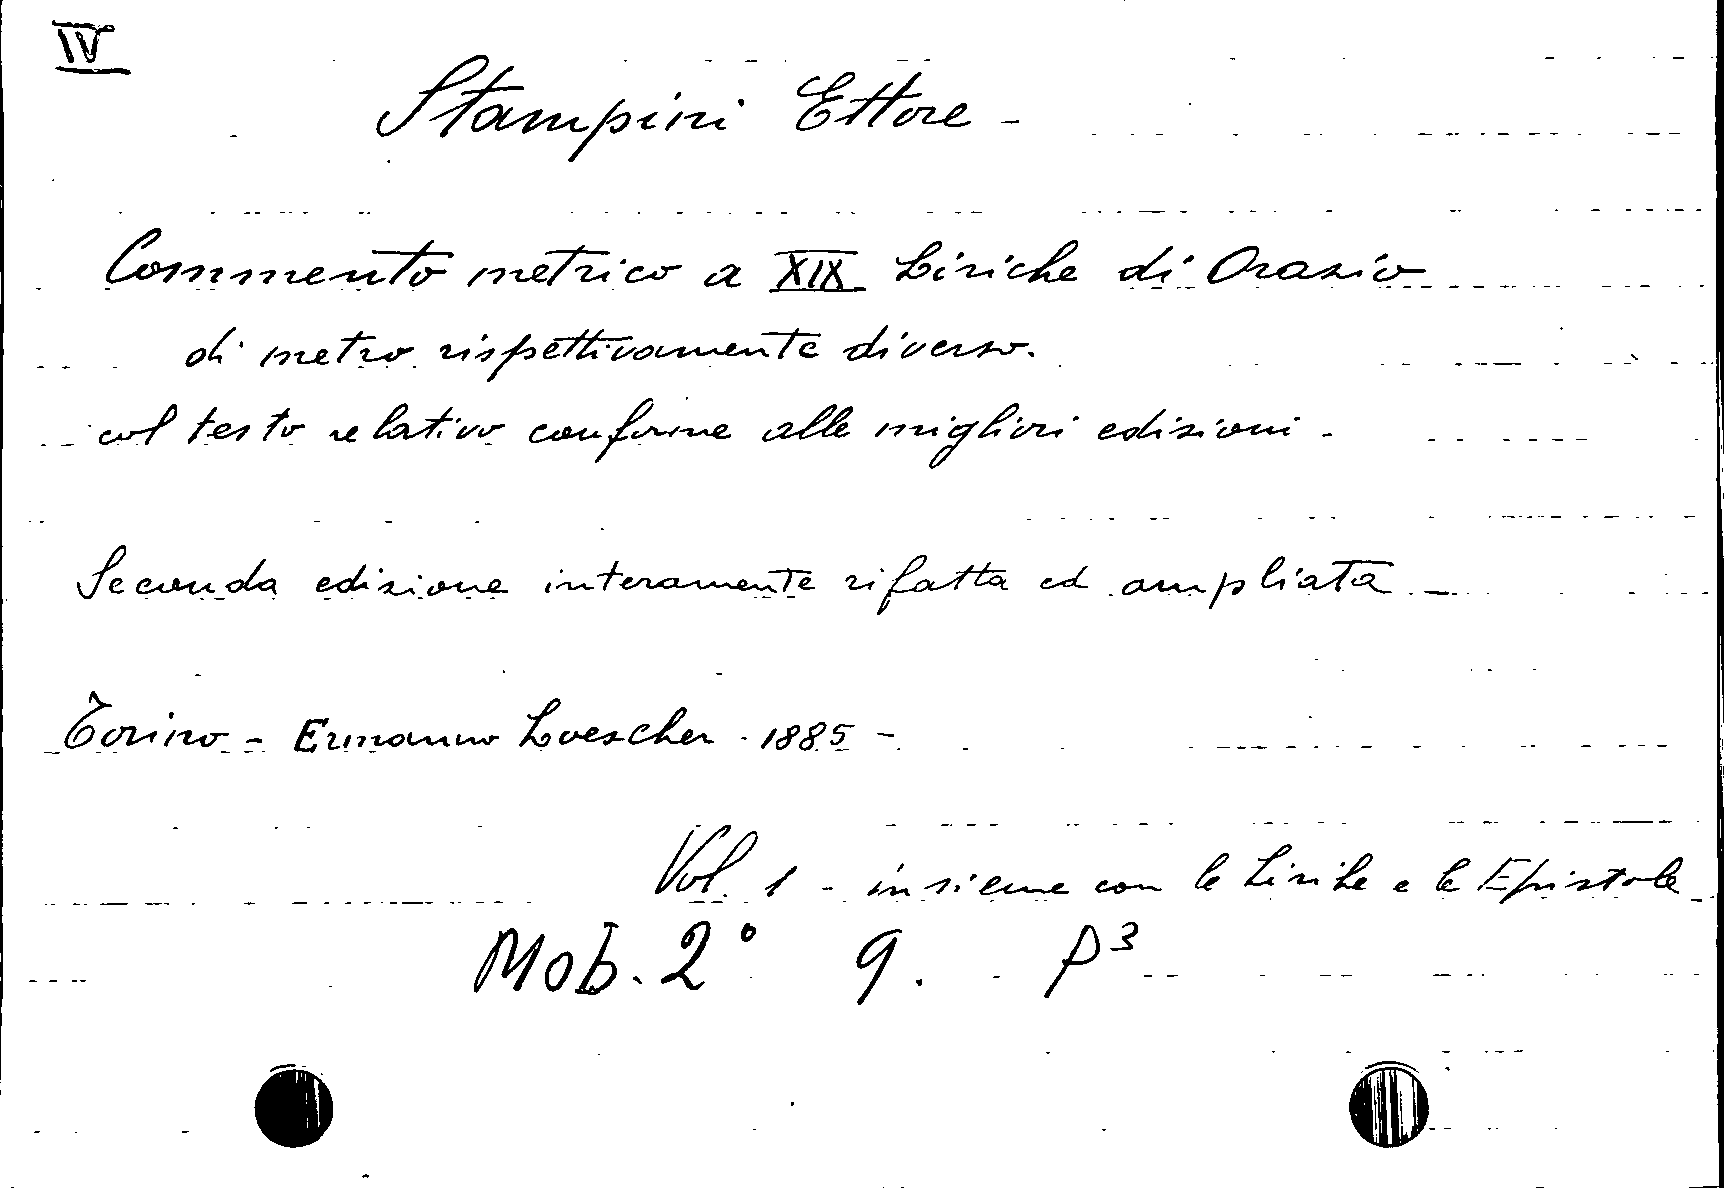 IV
Stampini Ettore -
Commento metrico a XIX Liriche di Orazio
di metro rispettivamente diverso.
col testo relativo conforme alle migliori edizioni -
Seconda edizione interamente rifatta ed ampliata -
Torino - Ermanno Loescher - 1885 -
Vol. 1 - insieme con le Liriche e le Epistole
Mob. 2° 9. P³